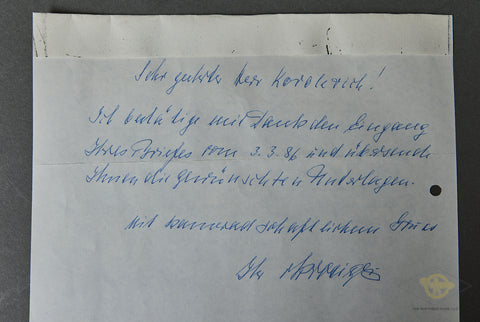 Sehr geehrter Herr
Ich bestätige mit Dank den Eingang
Ihres Briefes vom 3.3.86 und übersende
Ihnen die gewünschten Unterlagen.
Mit kameradschaftlichem Gruß
Ihr